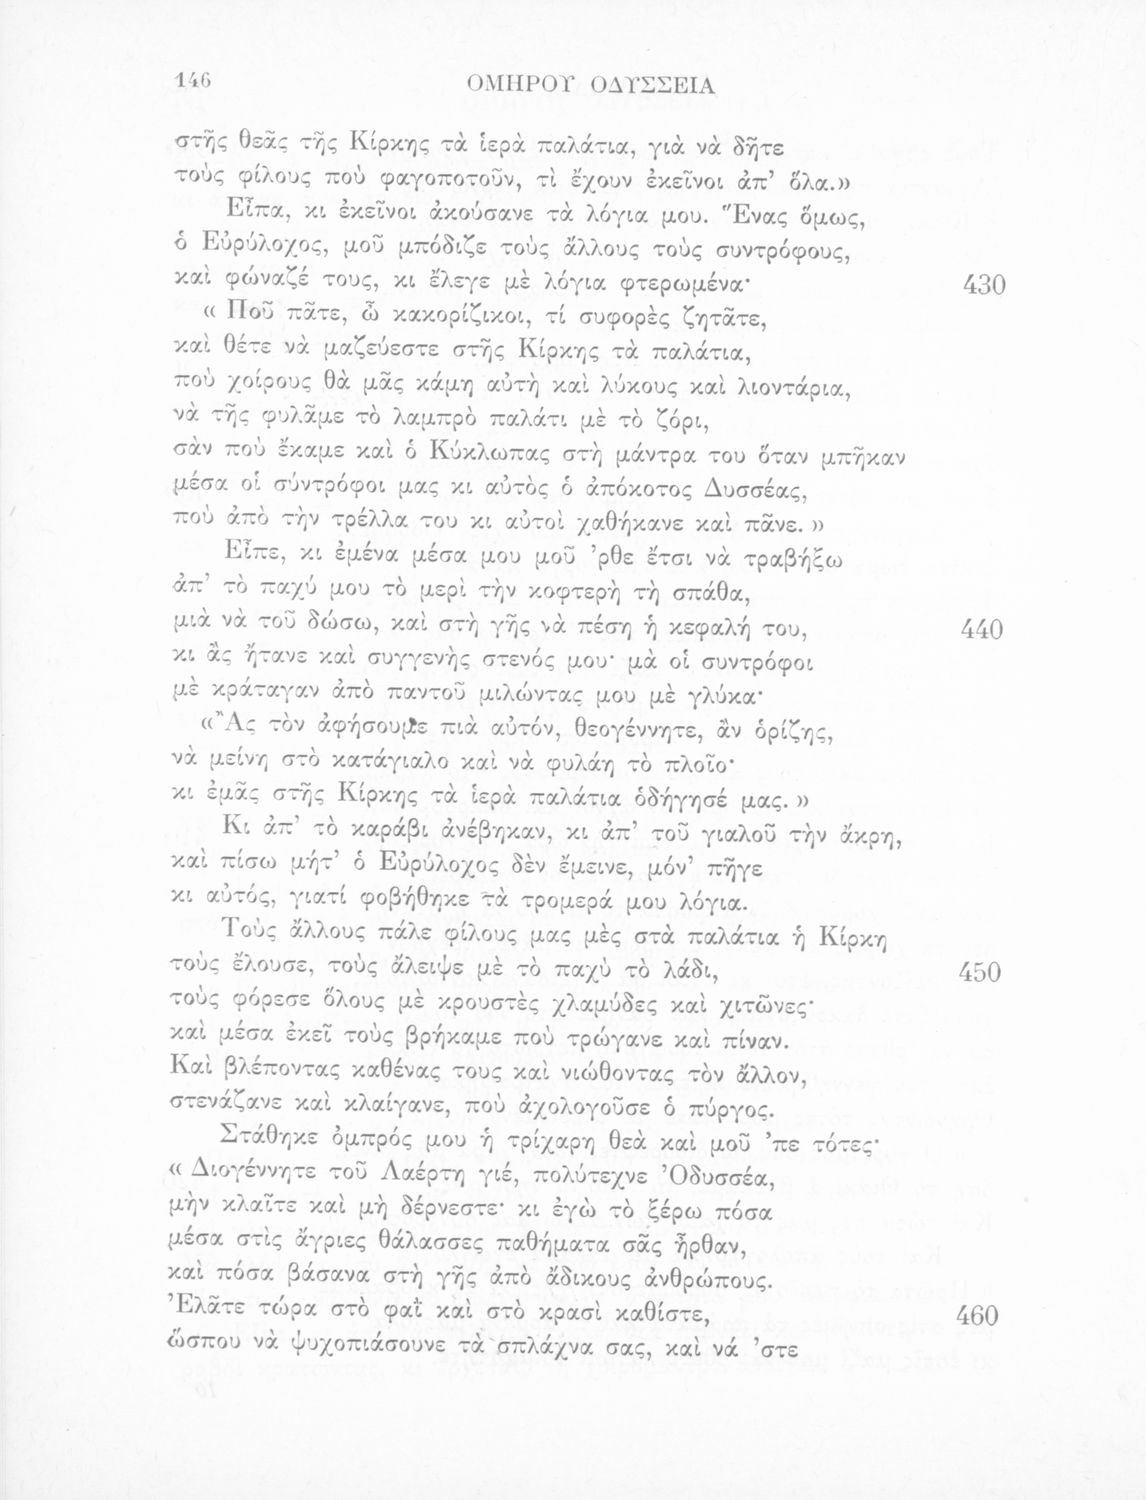 146
ΟΜΗΡΟΥ ΟΔΥΣΣΕΙΑ
στῆς θεᾶς τῆς Κίρκης τὰ ἱερὰ παλάτια, γιὰ νὰ δῆτε
τοὺς φίλους ποὺ φαγοποτοῦν, τὶ ἔχουν ἐκεῖνοι ἀπ’ ὅλα.»
Εἶπα, κι ἐκεῖνοι ἀκούσανε τὰ λόγια μου. Ἕνας ὅμως,
ὁ Εὐρύλοχος, μοῦ μπόδιζε τοὺς ἄλλους τοὺς συντρόφους,
καὶ φώναζέ τους, κι ἔλεγε μὲ λόγια φτερωμένα·
430
« Ποῦ πᾶτε, ὦ κακορίζικοι, τί συφορὲς ζητᾶτε,
καὶ θέτε νὰ μαζεύεστε στῆς Κίρκης τὰ παλάτια,
ποὺ χοίρους θὰ μᾶς κάμη αὐτὴ καὶ λύκους καὶ λιοντάρια,
νὰ τῆς φυλᾶμε τὸ λαμπρὸ παλάτι μὲ τὸ ζόρι,
σὰν ποὺ ἔκαμε καὶ ὁ Κύκλωπας στὴ μάντρα του ὅταν μπῆκαν
μέσα οἱ σύντρόφοι μας κι αὐτὸς ὁ ἀπόκοτος Δυσσέας,
ποὺ ἀπὸ τὴν τρέλλα του κι αὐτοὶ χαθήκανε καὶ πᾶνε. »
Εἶπε, κι ἐμένα μέσα μου μοῦ ’ρθε ἔτσι νὰ τραβήξω
ἀπ’ τὸ παχύ μου τὸ μερὶ τὴν κοφτερὴ τὴ σπάθα,
μιὰ νὰ τοῦ δώσω, καὶ στὴ γῆς νὰ πέση ἡ κεφαλή του,
440
κι ἂς ἤτανε καὶ συγγενὴς στενός μου· μὰ οἱ συντρόφοι
μὲ κράταγαν ἀπὸ παντοῦ μιλώντας μου μὲ γλύκα·
«Ἂς τὸν ἀφήσουμε πιὰ αὐτόν, θεογέννητε, ἂν ὁρίζης,
νὰ μείνη στὸ κατάγιαλο καὶ νὰ φυλάη τὸ πλοῖο·
κι ἐμᾶς στῆς Κίρκης τὰ ἱερὰ παλάτια ὁδήγησέ μας. »
Κι ἀπ’ τὸ καράβι ἀνέβηκαν, κι ἀπ’ τοῦ γιαλοῦ τὴν ἄκρη,
καὶ πίσω μήτ’ ὁ Εὐρύλοχος δὲν ἔμεινε, μόν’ πῆγε
κι αὐτός, γιατί φοβήθηκε τὰ τρομερά μου λόγια.
Τοὺς ἄλλους πάλε φίλους μας μὲς στὰ παλάτια ἡ Κίρκη
τοὺς ἔλουσε, τοὺς ἄλειψε μὲ τὸ παχὺ τὸ λάδι,
450
τοὺς φόρεσε ὅλους μὲ κρουστὲς χλαμύδες καὶ χιτῶνες·
καὶ μέσα ἐκεῖ τοὺς βρήκαμε ποὺ τρώγανε καὶ πίναν.
Καὶ βλέποντας καθένας τους καὶ νιώθοντας τὸν ἄλλον,
στενάζανε καὶ κλαίγανε, ποὺ ἀχολογοῦσε ὁ πύργος.
Στάθηκε ὀμπρός μου ἡ τρίχαρη θεὰ καὶ μοῦ ’πε τότες·
« Διογέννητε τοῦ Λαέρτη γιέ, πολύτεχνε Ὀδυσσέα,
μὴν κλαῖτε καὶ μὴ δέρνεστε· κι ἐγὼ τὸ ξέρω πόσα
μέσα στὶς ἄγριες θάλασσες παθήματα σᾶς ἦρθαν,
καὶ πόσα βάσανα στὴ γῆς ἀπὸ ἄδικους ἀνθρώπους.
Ἐλᾶτε τώρα στὸ φαῒ καὶ στὸ κρασὶ καθίστε,
460
ὥσπου νὰ ψυχοπιάσουνε τὰ σπλάχνα σας, καὶ νά ’στε